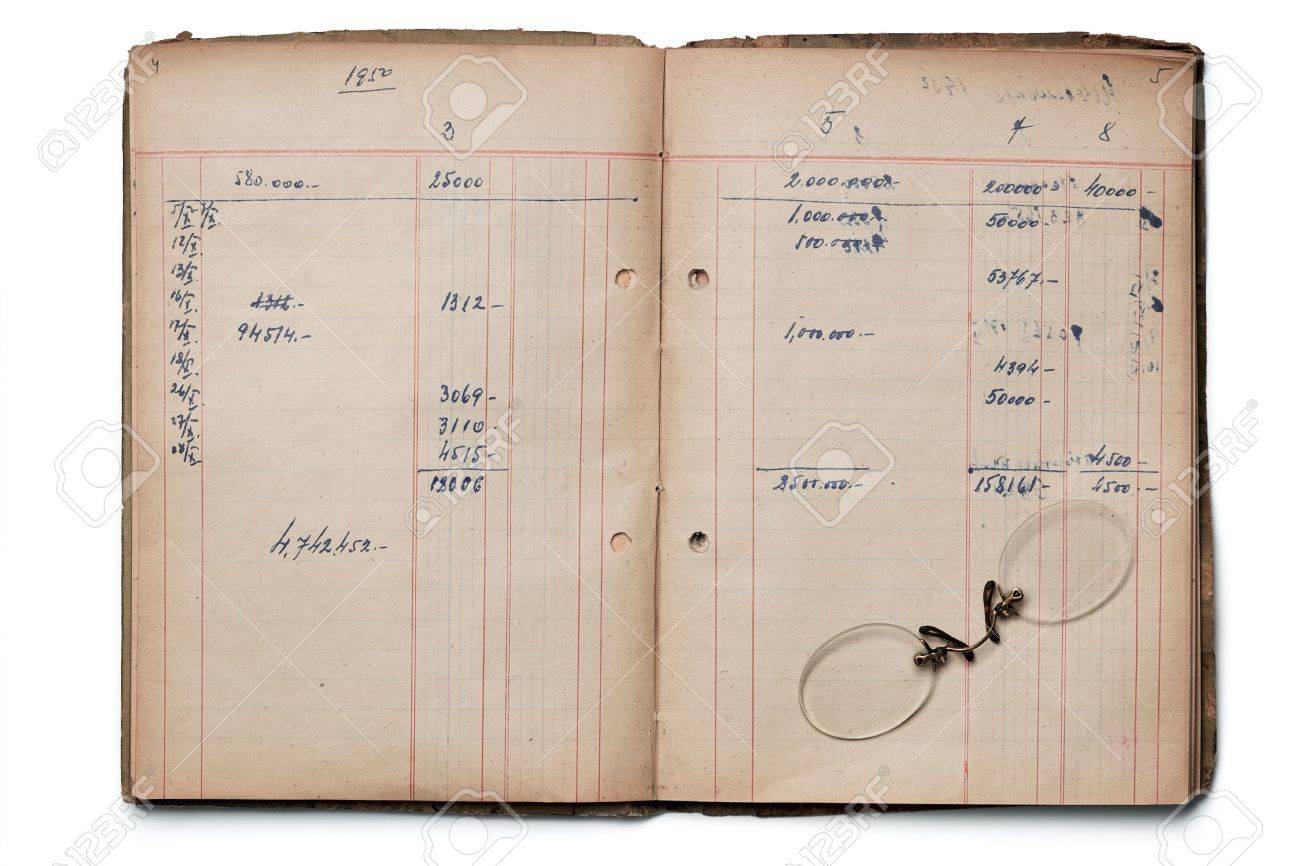 4
1950
3
580.000.- 25000
5/X 7/X.
12/X.
13/X.
16/X. 1312.- 1312-
17/X. 94514.-
18/X.
26/X. 3069-
27/X. 3110-
4515-
12006
4,742,452.-
5
5 7 8
2.000.000.- 200000.- 40000-
1.000.000.- 50000-
500.000.-
53767.-
1,000.000.-
4394-
50000-
4500-
2500.000.- 158161- 4500.-
123RF